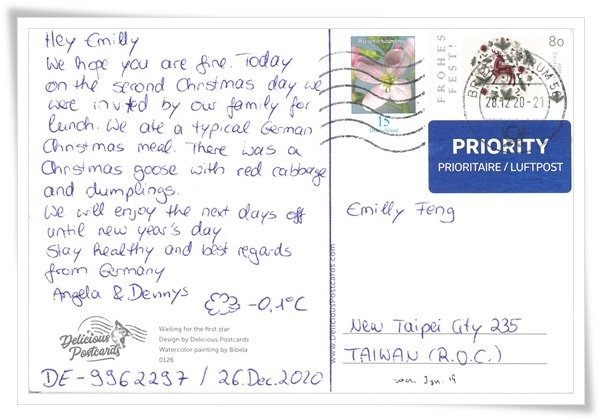 Hey Emilly
We hope you are fine. Today
on the second Christmas day we
were invited by our family for
lunch. We ate a typical German
Christmas meal. There was a
Christmas goose with red cabbage
and dumplings.
We will enjoy the next days off
until new year's day.
Stay healthy and best regards
from Germany
Angela & Dennys
-0,1°C
Delicious
Postcards
Waiting for the first star
Design by Delicious Postcards
Watercolor painting by Bibola
0126
DE-9962297 / 26.Dec.2020
www.DeliciousPostcards.com
15
FROHES
FEST!
80
28.12.20-21
PRIORITY
PRIORITAIRE / LUFTPOST
Emilly Feng
New Taipei City 235
TAIWAN (R.O.C.)